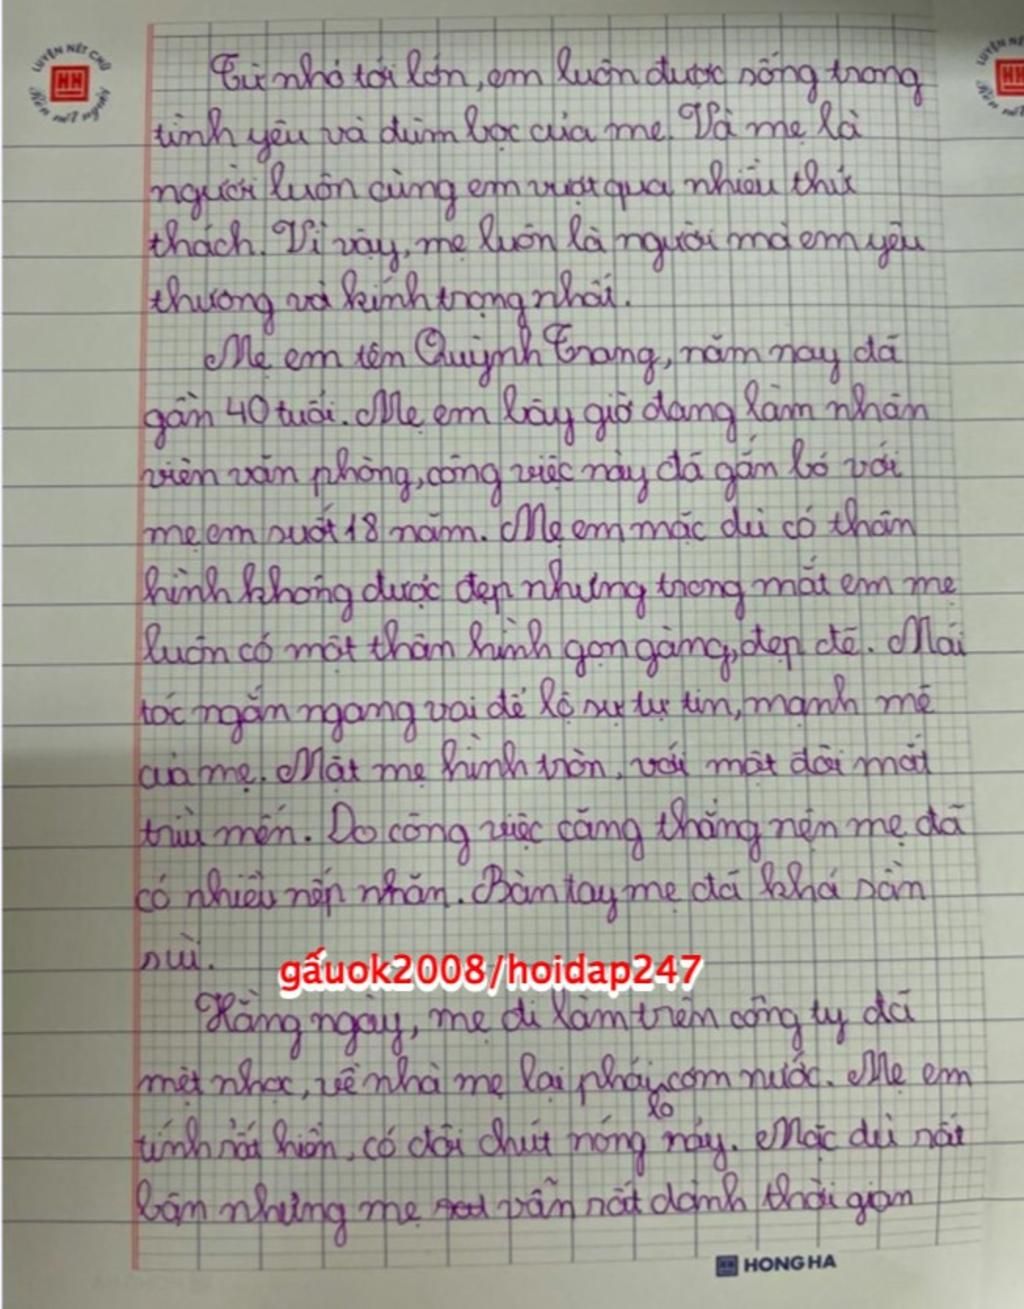 LUYỆN NÉT CHỮ
Rèn nết người
Từ nhỏ tới lớn, em luôn được sống trong
tình yêu và đùm bọc của mẹ. Và mẹ là
người luôn cùng em vượt qua nhiều thử
thách. Vì vậy, mẹ luôn là người mà em yêu
thương và kính trọng nhất.
Mẹ em tên Quỳnh Trang, năm nay đã
gần 40 tuổi. Mẹ em bây giờ đang làm nhân
viên văn phòng, công việc này đã gắn bó với
mẹ em suốt 18 năm. Mẹ em mặc dù có thân
hình không được đẹp nhưng trong mắt em mẹ
luôn có một thân hình gọn gàng, đẹp đẽ. Mái
tóc ngắn ngang vai để lộ sự tự tin, mạnh mẽ
của mẹ. Mặt mẹ hình tròn, với một đôi mắt
trìu mến. Do công việc căng thẳng nên mẹ đã
có nhiều nếp nhăn. Bàn tay mẹ đã khá sần
sùi.
gấuok2008/hoidap247
Hằng ngày, mẹ đi làm trên công ty đã
mệt nhọc, về nhà mẹ lại phải lo cơm nước. Mẹ em
tính rất hiền, có đôi chút nóng nảy. Mặc dù rất
bận nhưng mẹ vẫn rất dành thời gian
HONG HA